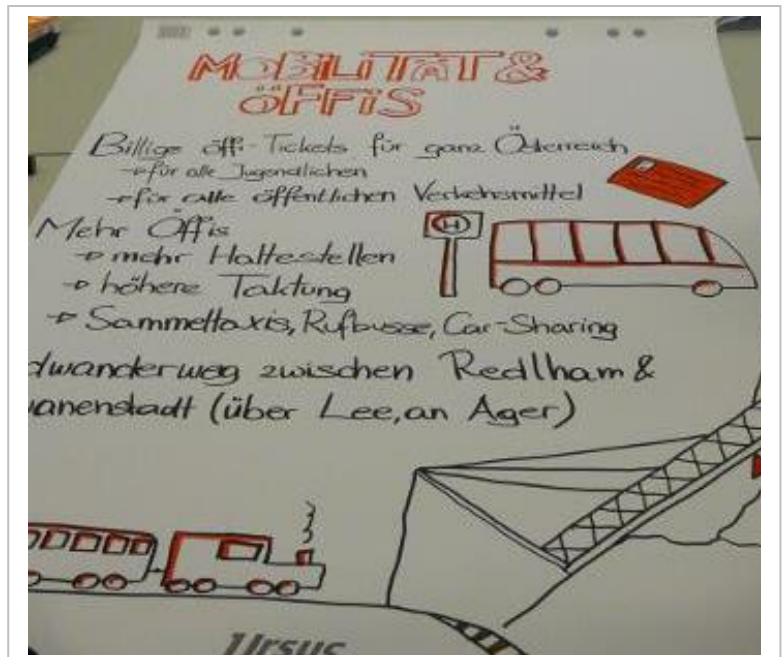 MOBILITÄT &
ÖFFIS
Billige öffi-Tickets für ganz Österreich
→ für alle Jugendlichen
→ für alle öffentlichen Verkehrsmittel
Mehr Öffis
→ mehr Haltestellen
→ höhere Taktung
→ Sammeltaxis, Rufbusse, Car-Sharing
dwanderweg zwischen Redlham &
wanenstadt (über Lee, an Ager)
H
Ursus